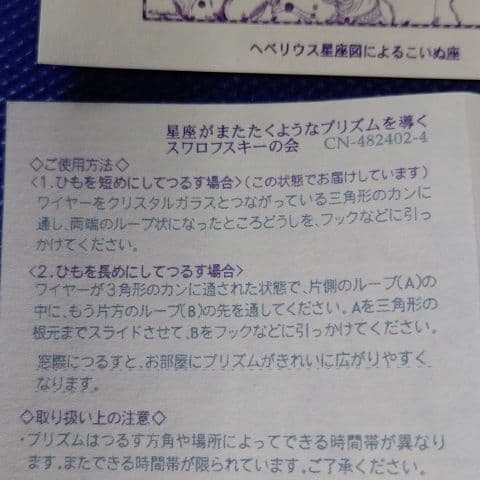 ヘベリウス星座図によるこいぬ座
星座がまたたくようなプリズムを導く
スワロフスキーの会 CN-482402-4
◇ご使用方法◇
<1.ひもを短めにしてつるす場合>(この状態でお届けしています)
ワイヤーをクリスタルガラスとつながっている三角形のカンに
通し、両端のループ状になったところどうしを、フックなどに引っ
かけてください。
<2.ひもを長めにしてつるす場合>
ワイヤーが3角形のカンに通された状態で、片側のループ(A)の
中に、もう片方のループ(B)の先を通してください。Aを三角形の
根元までスライドさせて、Bをフックなどに引っかけてください。
窓際につるすと、お部屋にプリズムがきれいに広がりやすく
なります。
◇取り扱い上の注意◇
・プリズムはつるす方角や場所によってできる時間帯が異なり
ます。またできる時間帯が限られています。ご了承ください。